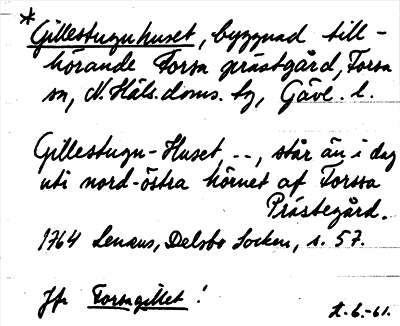 *Gillestuguhuset, byggnad till-
hörande Forsa prästgård, Forsa
sn, N. Häls. doms. tg, Gävl. l.
Gillestugu-Huset, --, står än i dag
uti nord-östra hörnet af Forssa
Prästegård.
1764 Lenæus, Delsbo Socken, s. 57.
Jfr Forsagillet!